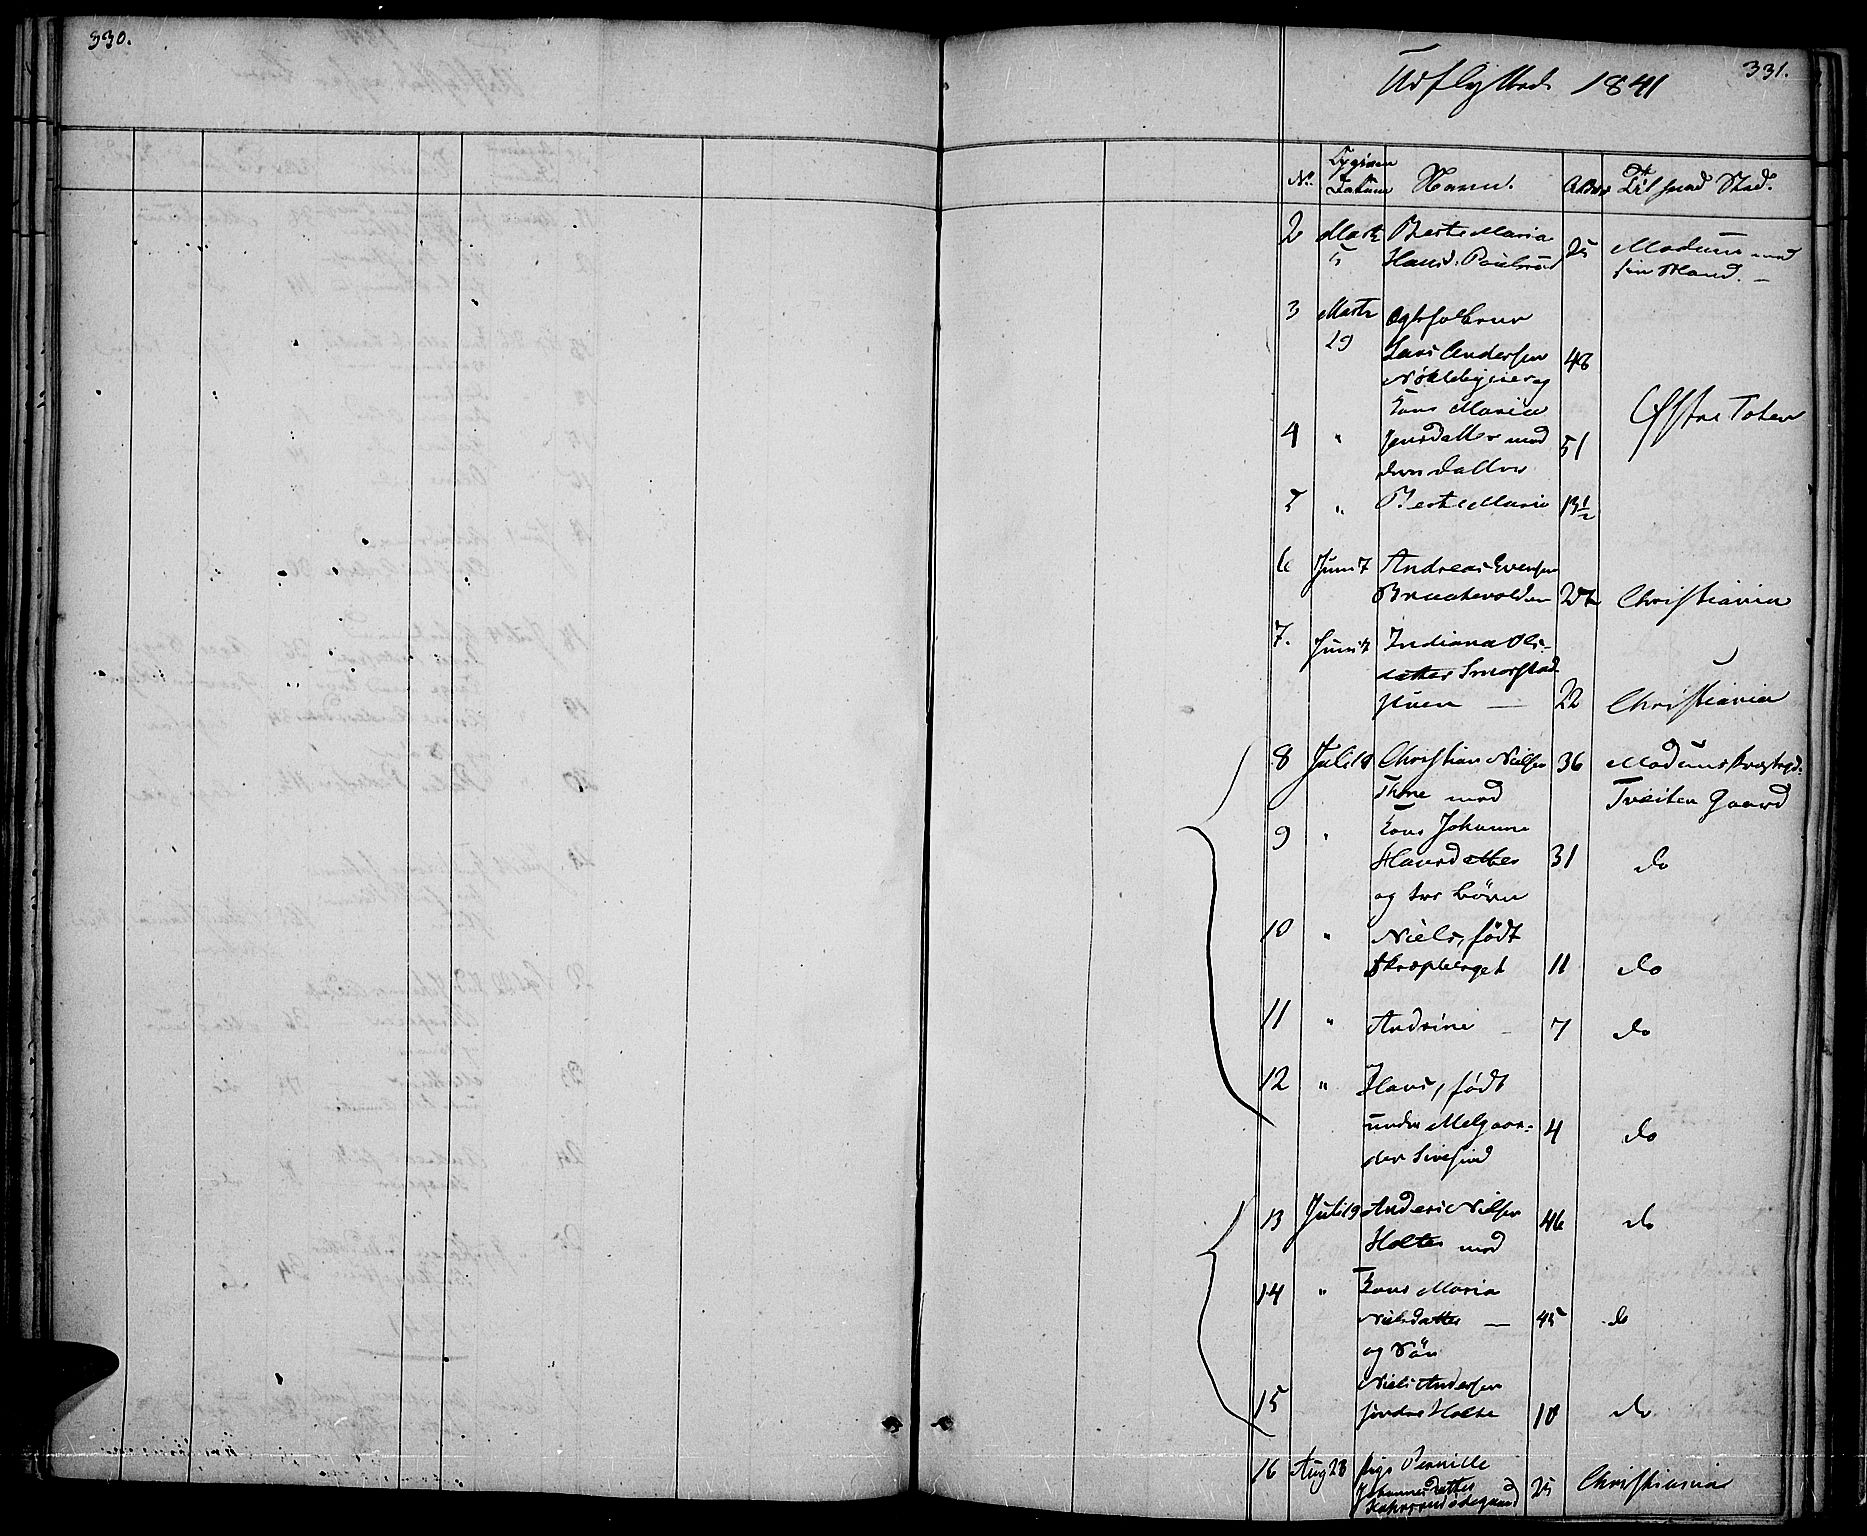 330.
331.
Udflyttede 1841
No. Datum Navn. Alder Til hvad Sted.
2 Marts 5 Berte Maria 25 Modum med
Hansd. Poulsrud sin Mand. —
3 Marts 19 Ægtefolkene
Lars Andersen 48
Nøkleby og
Kone Maria Østre Toten
4 " Jensdatter med 51
deres datter
5 " Berte Marie 13½
6 Juni 7 Andreas Evensen
Braatevolden Christiania
7. Juni Indiana Ols-
datter Smørstad
— 22 Christiania
8 Juli 18 Christian Nielsen 36 Modums Præstegd.
Thone med Tveiten Gaard
9 " Kone Johanne
Hansdatter 31 do
og tre Børn
10 " Niels, født
Skræpberget 11 do
11 " Andrine — 7 do
12 " Hans, født
under Melgaar- 4 do
der
13 Juli 19 Anders Nielsen 46 do
Holte med
14 " Kone Maria
Nielsdatter — 45 do
og Søn
15 Niels Andersen
Holte 10 do
16 Aug 28 Pige Pernille
Johannesdatter 25 Christiania